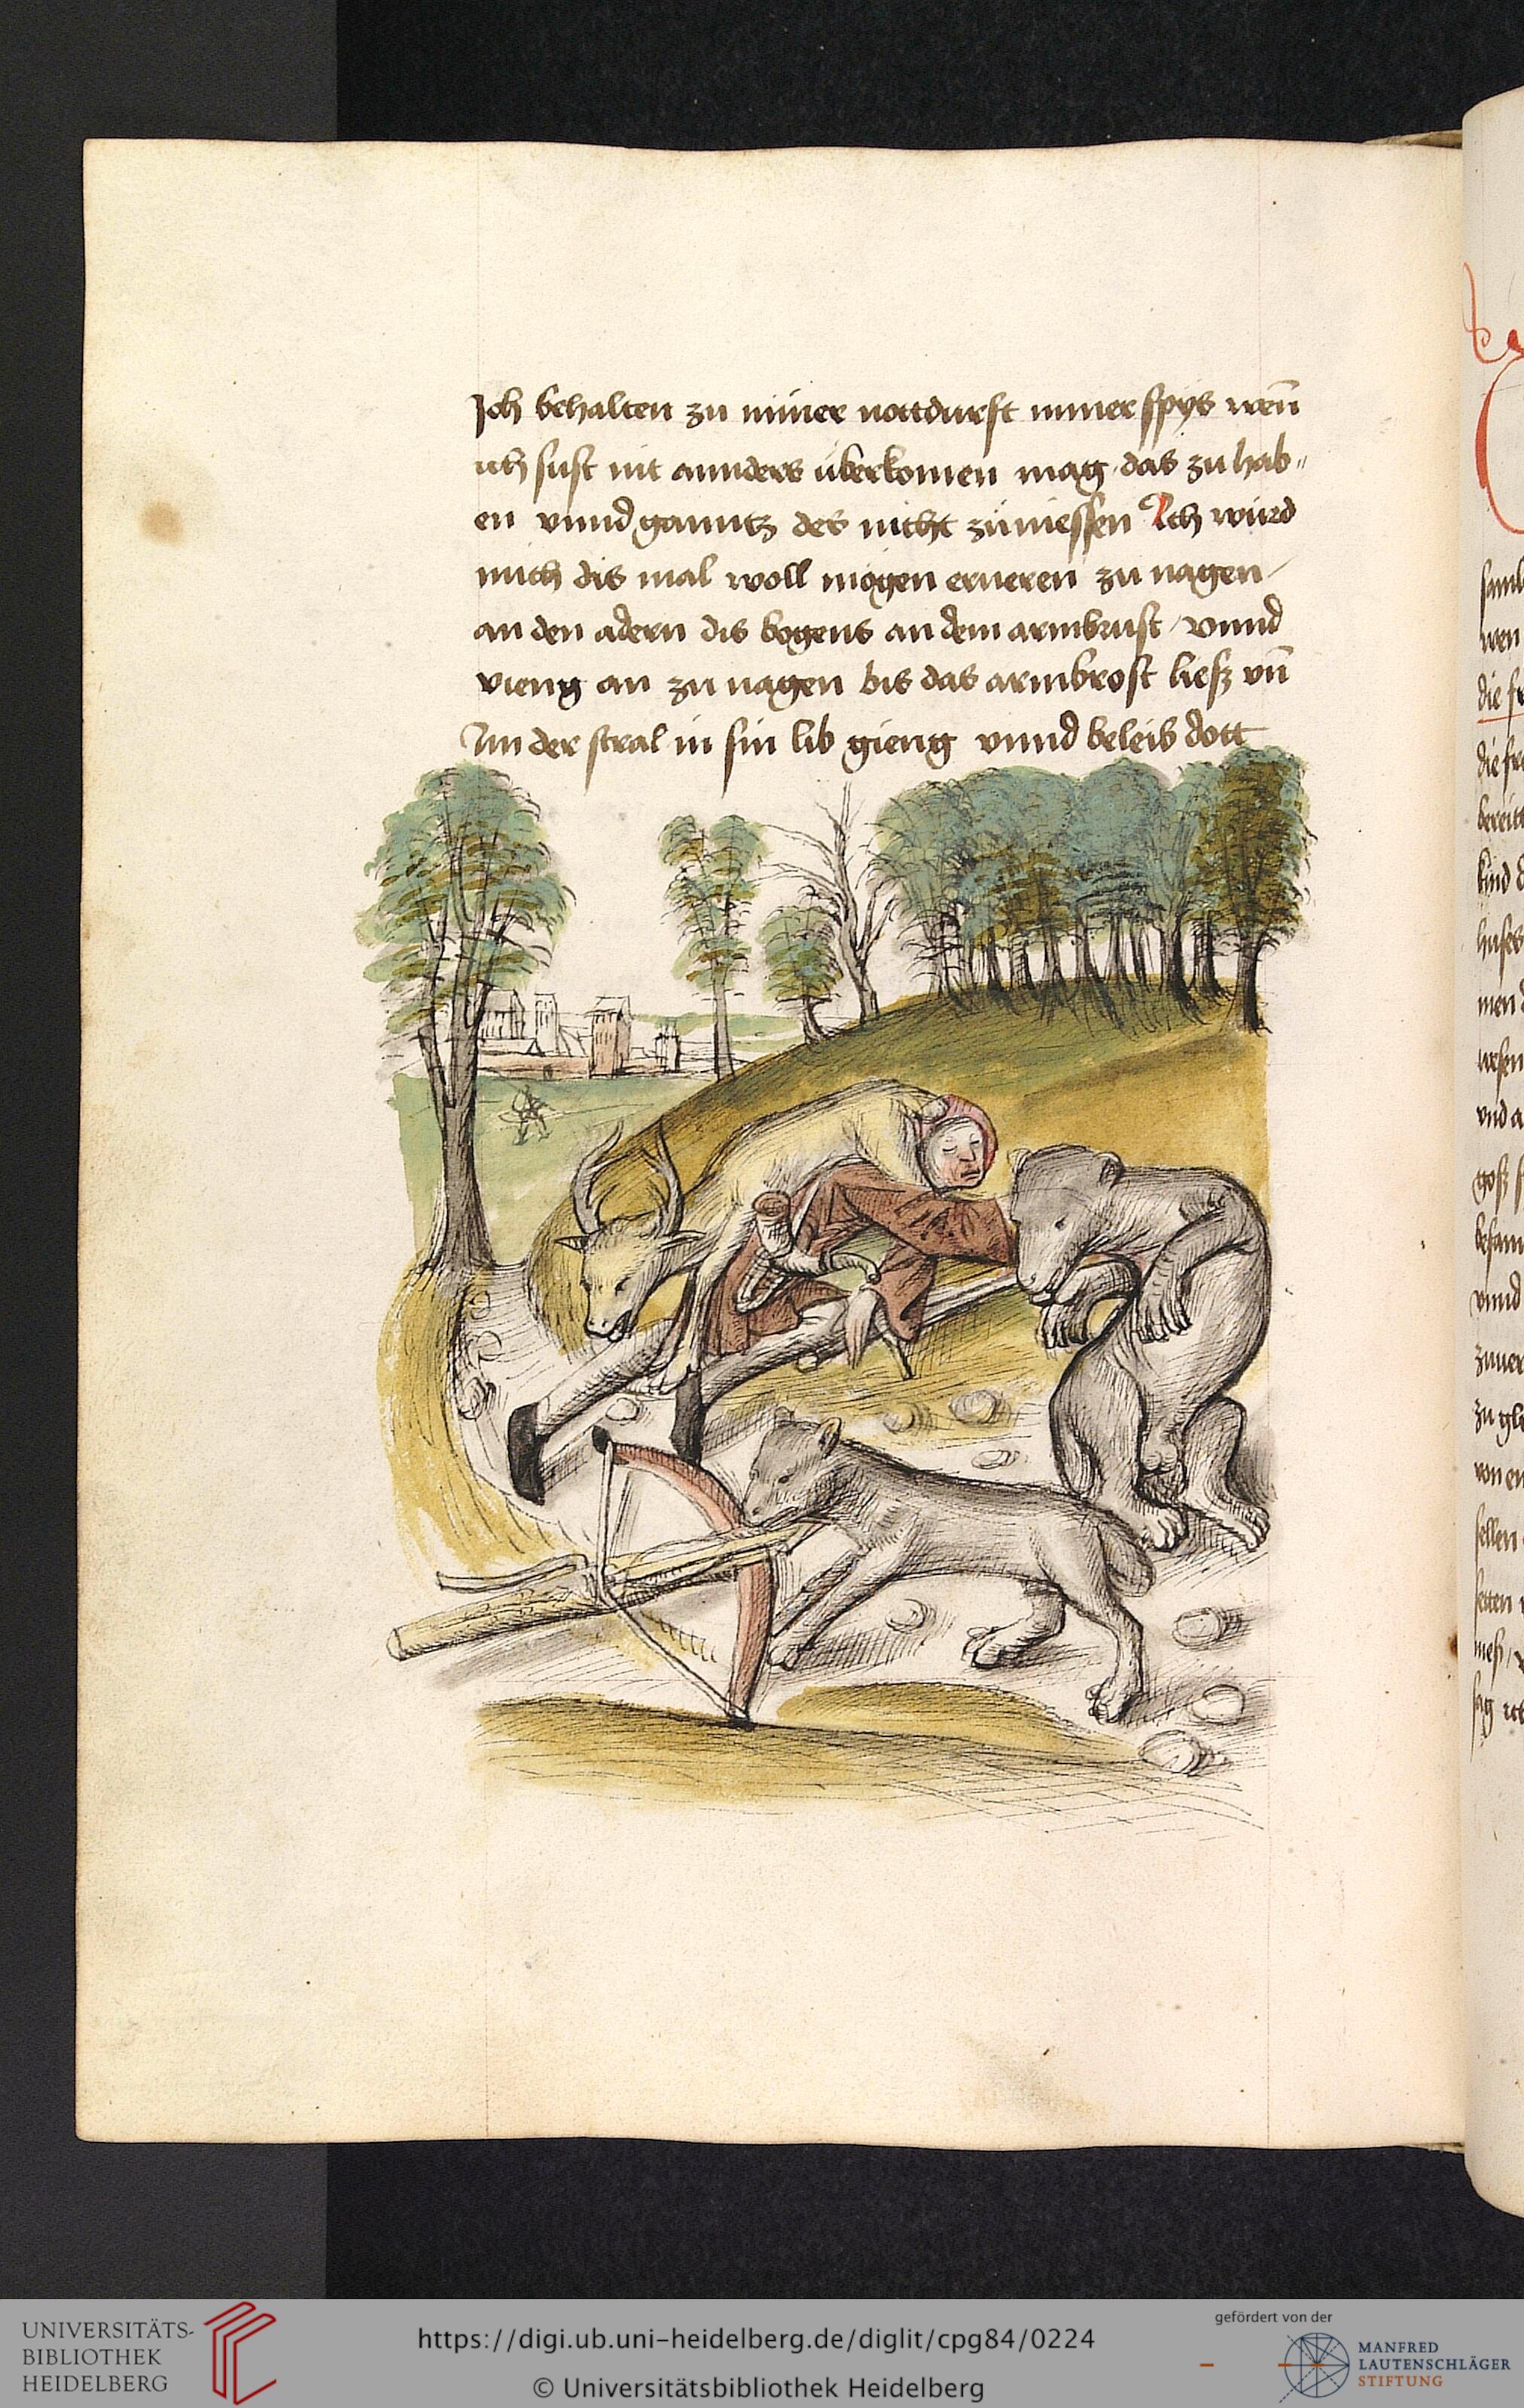 Ich behalten zu miner nottdurft miner spÿs wen̄
ich sust nit annders überkomen mag das zu hab〃
en vnnd ganntz des nicht zúniessen Ich wúrd
mich dis mal woll mögen erneren zu nagen /
an den adern dis bogens an dem armbrust / vnnd
vieng an zu nagen bis das armbrost liesz vn̄
Im der stral in sin lib gieng vnnd beleib dott
wen
die
die
kind
men
vnd
vnnd
von
sellen
UNIVERSITÄTS-
BIBLIOTHEK
HEIDELBERG
https://digi.ub.uni-heidelberg.de/diglit/cpg84/0224
© Universitätsbibliothek Heidelberg
gefördert von der
MANFRED
LAUTENSCHLÄGER
STIFTUNG